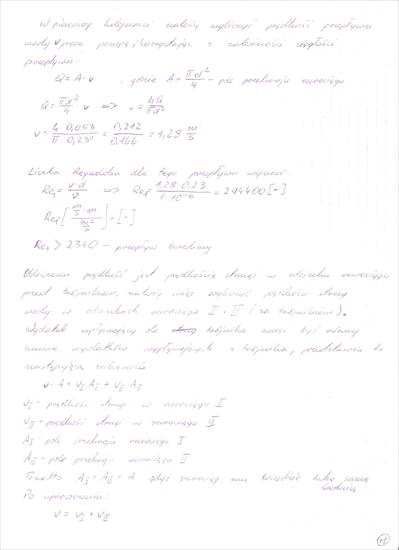 W pierwszej kolejności należy wyliczyć prędkość przepływu
wody v przez pompę, korzystając z zależności ciągłości
przepływu:
Q = A · v , gdzie A = πd²/4 - pole przekroju rurociągu
Q = πd²/4 · v => v = 4Q/πd²
v = 4 · 0,053 / π · 0,23² = 0,212 / 0,166 = 1,28 m/s
Liczba Reynoldsa dla tego przepływu wynosi:
Re₁ = v · d / ν => Re₁ = 1,28 · 0,23 / 1 · 10⁻⁶ = 294400 [-]
Re₁ [m/s · m / m²/s] = [-]
Re₁ > 2340 - przepływ burzliwy
Obliczona prędkość jest prędkością strugi w odcinku rurociągu
przed trójnikiem, należy więc wyliczyć prędkości strug
wody w odcinkach rurociągu I i II (za trójnikiem).
Wydatek wpływający do trójnika musi być równy
sumie wydatków wypływających z trójnika, przedstawia to
następująca zależność:
v · A = v_I A_I + v_II A_II
v_I - prędkość strugi w rurociągu I
v_II - prędkość strugi w rurociągu II
A_I - pole przekroju rurociągu I
A_II - pole przekroju rurociągu II
A_I = A_II = A gdyż rurociąg ma taką samą
średnicę
Po uproszczeniu:
v = v_I + v_II